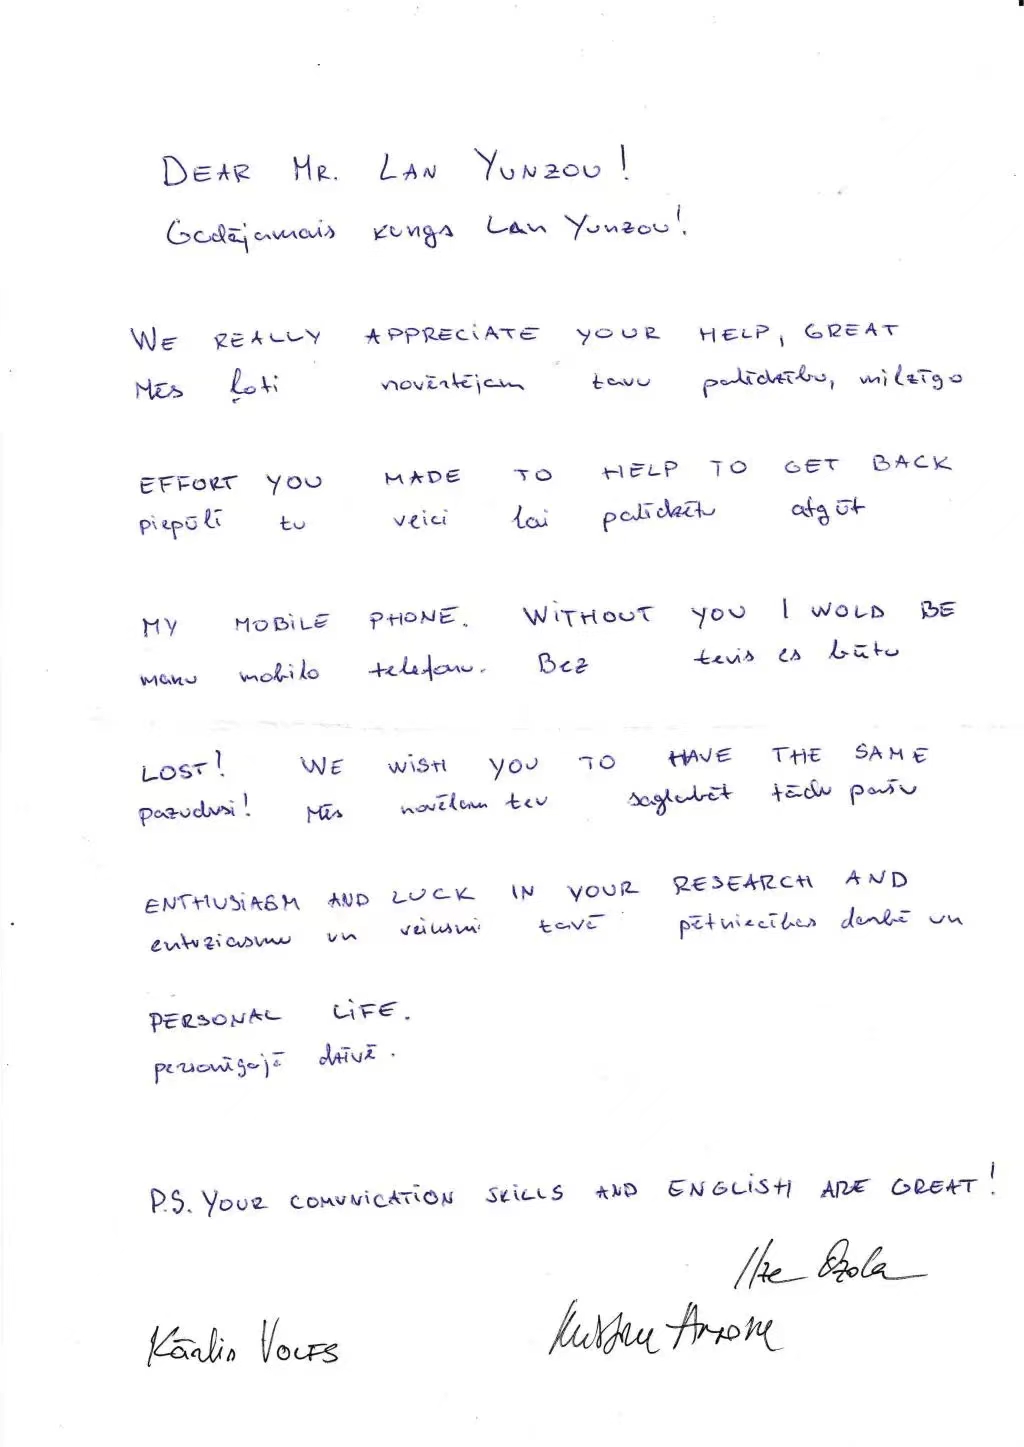 DEAR MR. LAN YUNZOU!
Godājamais kungs Lan Yunzou!
WE REALLY APPRECIATE YOUR HELP, GREAT
Mēs ļoti novērtējam tavu palīdzību, milzīgo
EFFORT YOU MADE TO HELP TO GET BACK
piepūli tu veici lai palīdzētu atgūt
MY MOBILE PHONE. WITHOUT YOU I WOLD BE
manu mobilo telefonu. Bez tevis es būtu
LOST! WE WISH YOU TO HAVE THE SAME
pazudusi! Mēs novēlam tev saglabāt tādu pašu
ENTHUSIASM AND LUCK IN YOUR RESEARCH AND
entuziasmu un veiksmi tavā pētniecības darbā un
PERSONAL LIFE.
personīgajā dzīvē.
P.S. YOUR COMUNICATION SKILLS AND ENGLISH ARE GREAT!
Ilze Ozola
Kārlis VOLFS